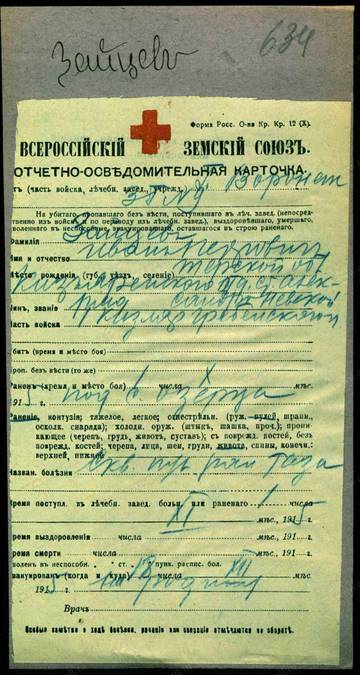 Зайцевъ
634
Форма Росс. О-ва Кр. Кр. 12 (X).
ВСЕРОССІЙСКІЙ ЗЕМСКІЙ СОЮЗЪ.
ОТЧЕТНО-ОСВѢДОМИТЕЛЬНАЯ КАРТОЧКА.
(часть войска, лѣчебн. завед., учрежд.) Воронеж
На убитаго, пропавшаго безъ вѣсти, поступившаго въ лѣч. завед. (непосред-
ственно изъ войскъ и по переводу изъ лѣчебн. завед.), выздоровѣвшаго, умершаго,
уволеннаго въ неспособные, эвакуированнаго, оставшагося въ строю раненаго.
Фамилія Зайцевъ
Имя и отчество Иванъ
Мѣсто рожденія (губ., уѣздъ, селеніе) Терской об
Кизлярскаго
Чинъ, званіе
Часть войска Кизляро гребенскаго
Убитъ (время и мѣсто боя)
Проп. безъ вѣсти (то же)
Раненъ (время и мѣсто боя) числа X мѣс.
1915 г. под
Раненіе, контузія: тяжелое, легкое; огнестрѣльн. (руж. пулей, шрапн.,
осколк. снаряда); холодн. оруж. (штыкъ, шашка, проч.); прони-
кающее (черепъ, грудь, животъ, суставъ); съ поврежд. костей, безъ
поврежд. костей; черепа, лица, шеи, груди, живота, спины, конечн.:
верхней, нижней
Назван. болѣзни скв. пул ран таза
Время поступл. въ лѣчебн. завед. больн. или раненаго 1 числа
XI мѣс., 1915 г.
Время выздоровленія числа мѣс., 191 г.
Время смерти числа мѣс., 191 г.
Уволенъ въ неспособн. ст. пунк. распис. бол.
Эвакуированъ (когда и куда) XII
1915 г. на родину
Врачъ
Особыя замѣтки о ходѣ болѣзни, раненія или операціи отмѣчаются на оборотѣ.